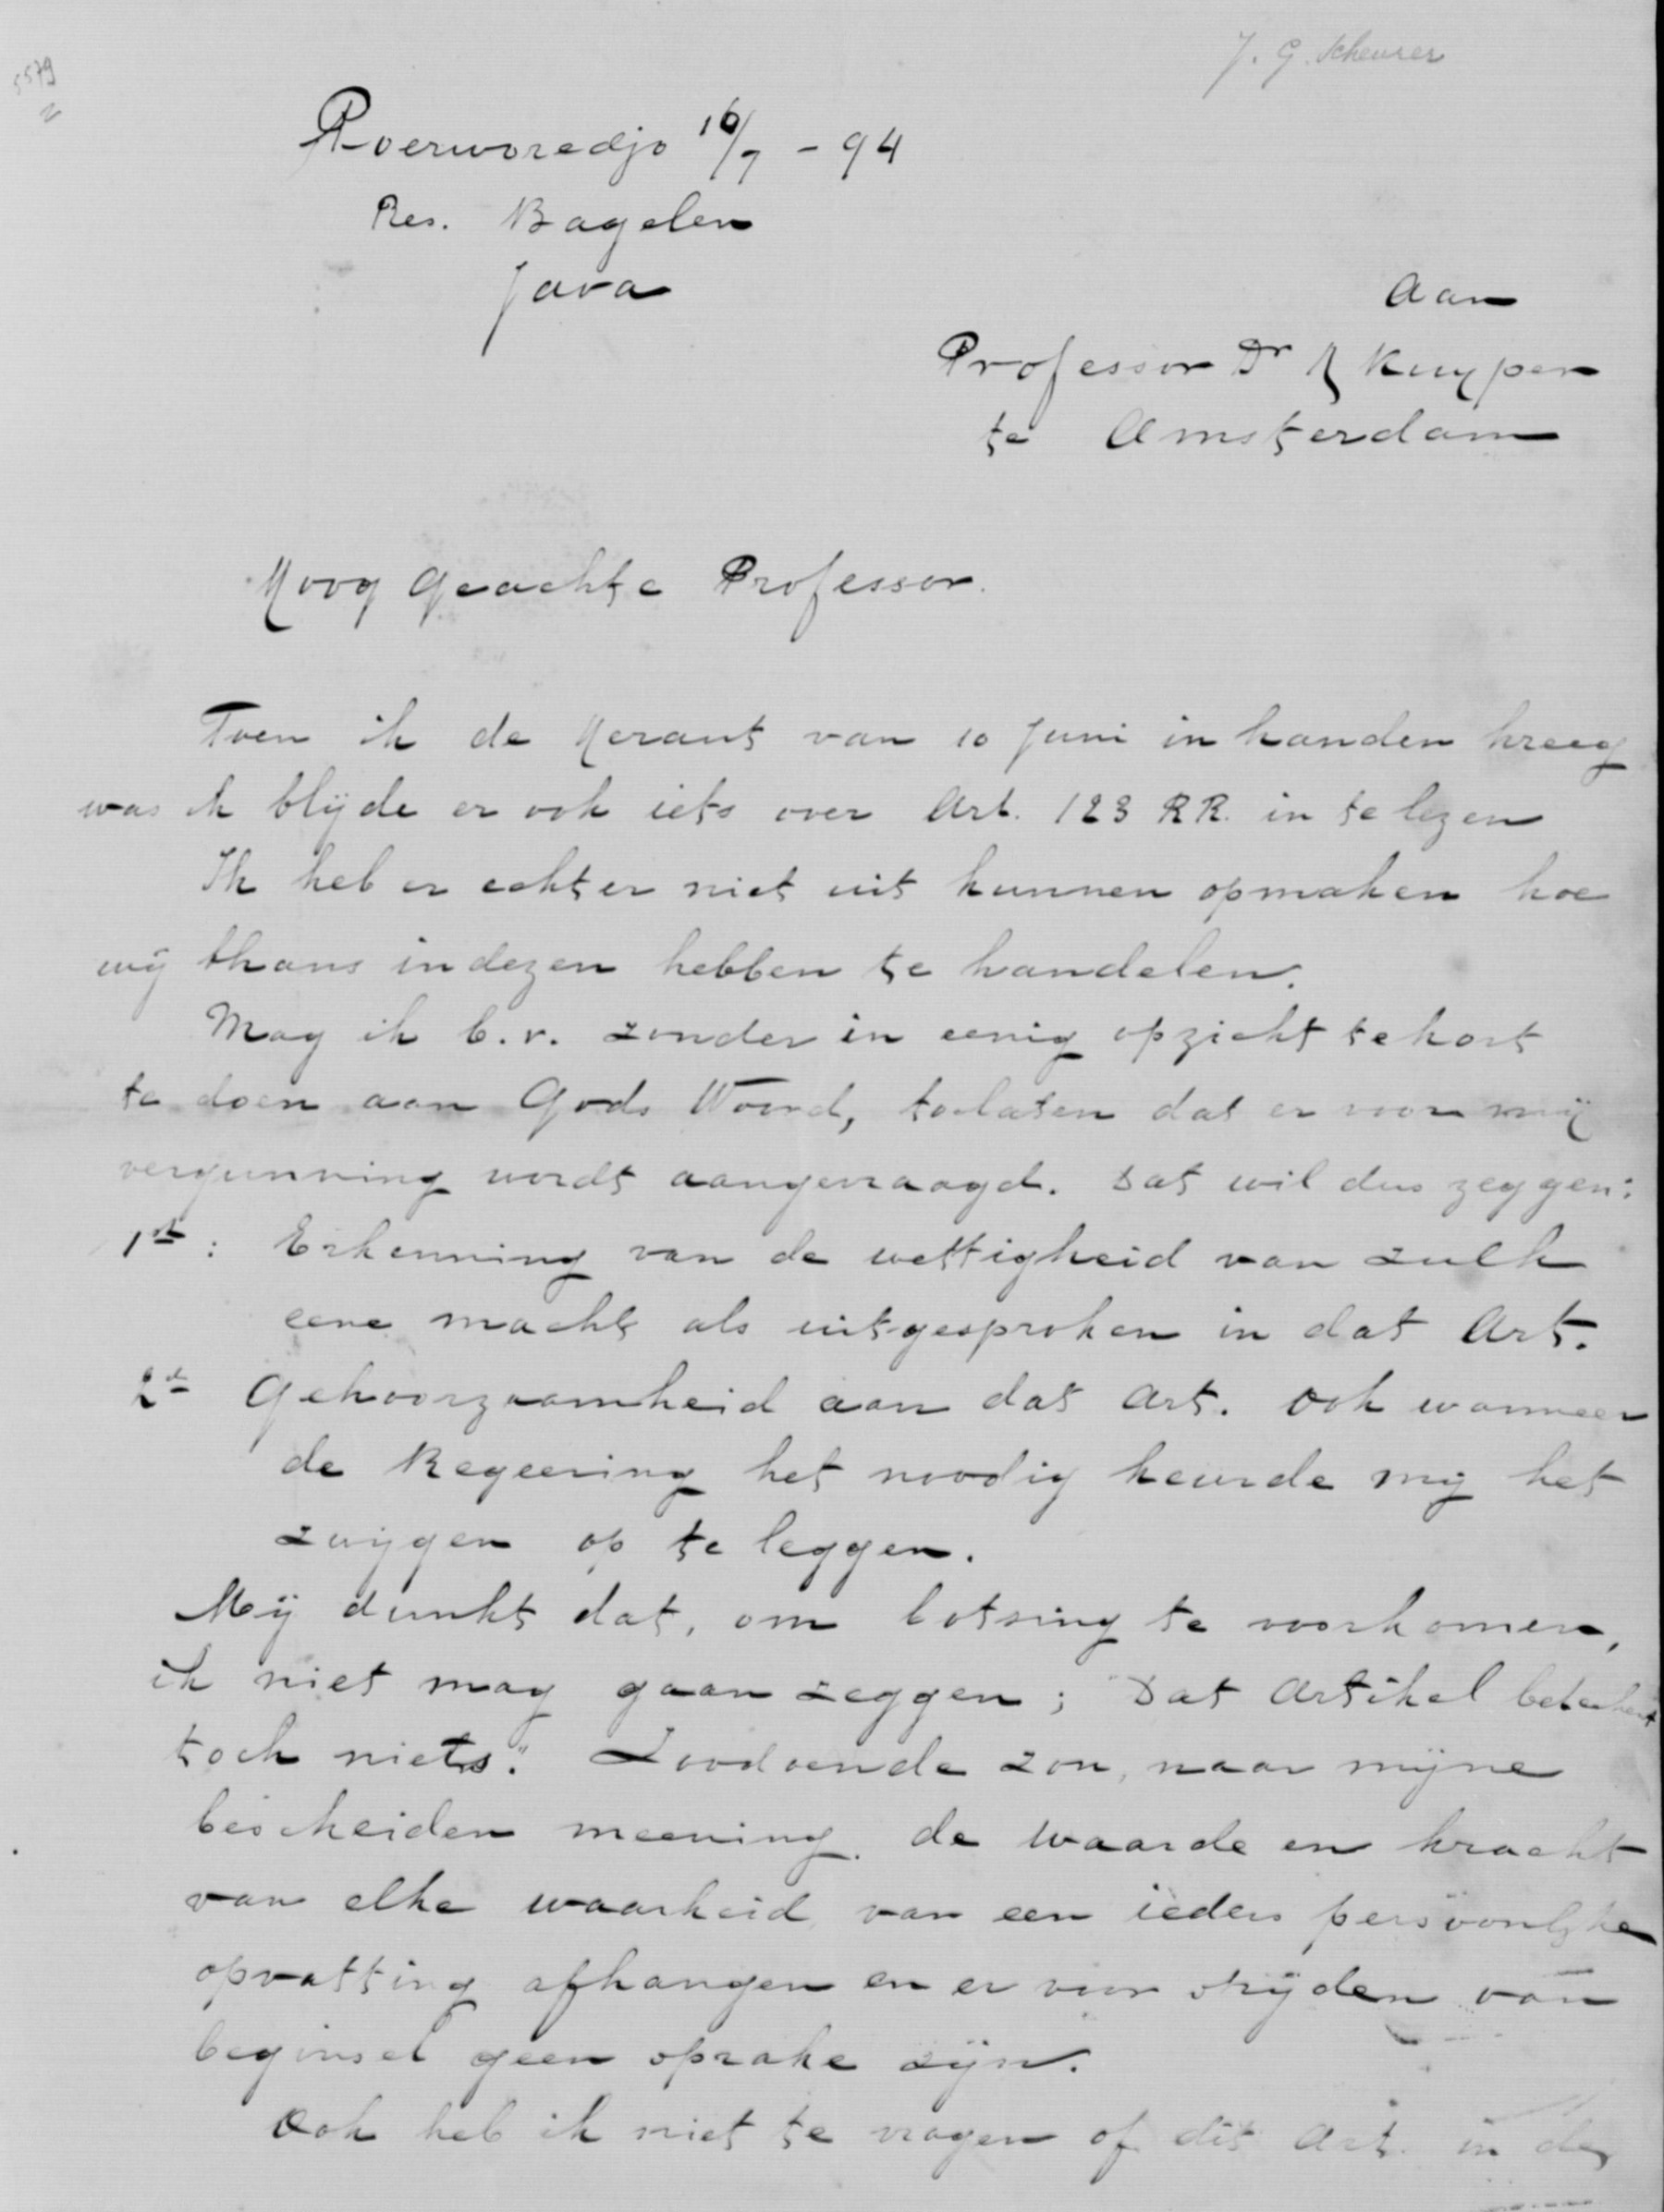 J. G. Scheurer
5579
2
Poerworedjo 16/7 - 94
Res. Bagelen
Java
Aan
Professor Dr A Kuyper
te Amsterdam
Hoog Geachte Professor.
Toen ik de Heraut van 10 Juni in handen kreeg
was ik blijde er ook iets over Art. 123 RR. in te lezen
Ik heb er echter niet uit kunnen opmaken hoe
wij thans in dezen hebben te handelen.
Mag ik b.v. zonder in eenig opzicht tekort
te doen aan Gods Woord, toelaten dat er voor mij
vergunning wordt aangevraagd. Dat wil dus zeggen:
1st: Erkenning van de wettigheid van zulk
eene macht als uitgesproken in dat Art.
2d Gehoorzaamheid aan dat Art. ook wanneer
de Regeering het noodig keurde mij het
zwijgen op te leggen.
Mij dunkt dat, om botsing te voorkomen,
ik niet mag gaan zeggen; "Dat Artikel beteekent
toch niets". Zoodoende zou, naar mijne
bescheiden meening, de waarde en kracht
van elke waarheid van een ieders persoonlijke
opvatting afhangen en er voor strijden van
beginsel geen sprake zijn.
Ook heb ik niet te vragen of dit Art. in de